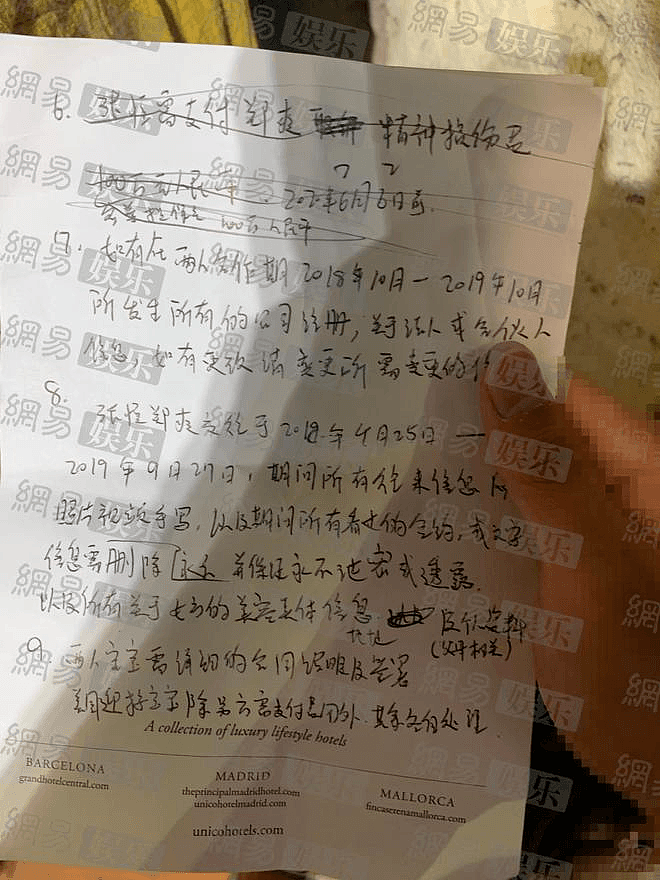 6. 张恒需支付郑爽 精神损伤费
100万元人民币 . 2020年6月6日前.
100万人民币
7. 如有在两人合作期2018年10月一2019年10月
所发生所有的公司注册,关于法人或合伙人
信息,如有变故请变更所需变更的
8.
张恒郑爽交往于2018年4月25日 —
2019年9月27日,期间所有往来信息及
照片视频手写,以及期间所有看过的合约,或文字
信息需删除 永久 并保证永不泄密或透露.
以及所有关于女方的美容 身体信息
(父母相关)
9. 两人宝宝需 的合同 及签署
A collection of luxury lifestyle hotels
BARCELONA
grandhotelcentral.com
MADRID
theprincipalmadridhotel.com
unicohotelmadrid.com
MALLORCA
fincaserenamallorca.com
unicohotels.com
網易娱乐